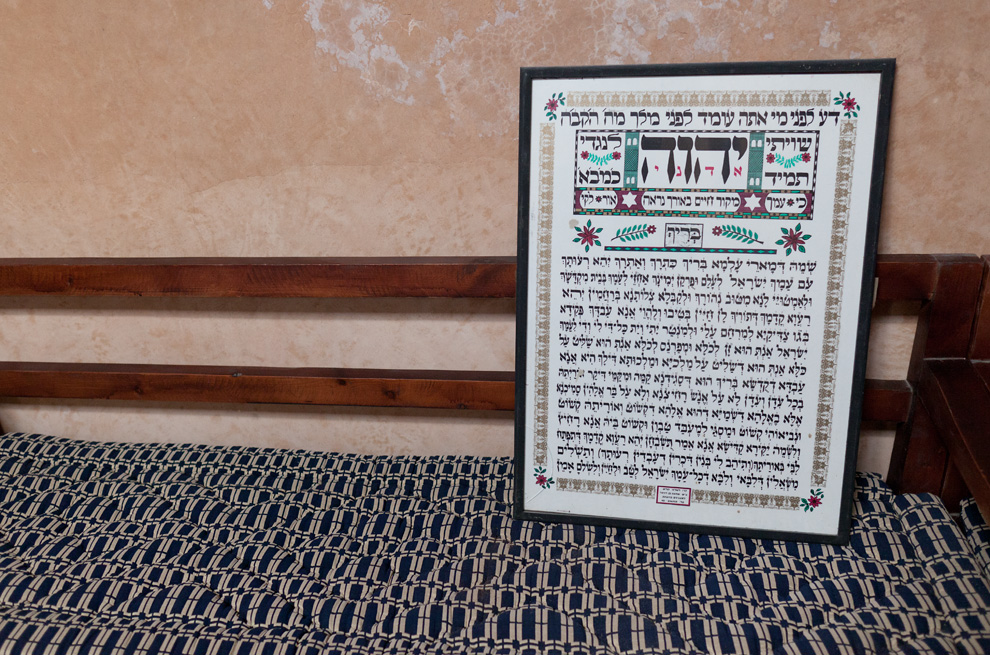 דע לפני מי אתה עומד לפני מלך מה הקבה
שויתי יהוה לנגדי
תמיד אדני
כי עמך מקור חיים באורך נראה אור
בריך
שמה דמארי עלמא בריך כתרך ואתרך יהא רעותך
עם עמך ישראל לעלם ופרקן ימינך אחזי לעמך בבית מקדשך
ולאמטויי לנא מטוב נהורך ולקבלא צלותנא ברחמין יהא
רעוא קדמך דתוריך לן חיין בטיבו ולהוי אנא עבדך פקידא
בגו צדיקיא למרחם עלי ולמנטר יתי וית כל דידי לי ודי לעמך
ישראל אנת הוא זן לכלא ומפרנס לכלא אנת הוא שליט על
כלא אנת הוא דשליט על מלכיא ומלכותא דילך היא אנא
עבדא דקדשא בריך הוא דסגידנא קמה ומקמי דיקר אוריתה
בכל עדן ועדן לא על אנש רחיצנא ולא על בר אלהין סמיכנא
אלא באלהא דשמיא דהוא אלהא דקשוט ואוריתה קשוט
ונביאוהי קשוט ומסגי למעבד טבון וקשוט ביה אנא רחיץ
ולשמה יקירא קדישא אנא אמר תשבחן יהא רעוא קדמך דתפתח
לבי באוריתך (ותיהב לי בנין דכרין דעבדין רעותך) ותשלים
משאלין דלבאי ולבא דכל עמך ישראל לטב ולחיין ולשלם אמן